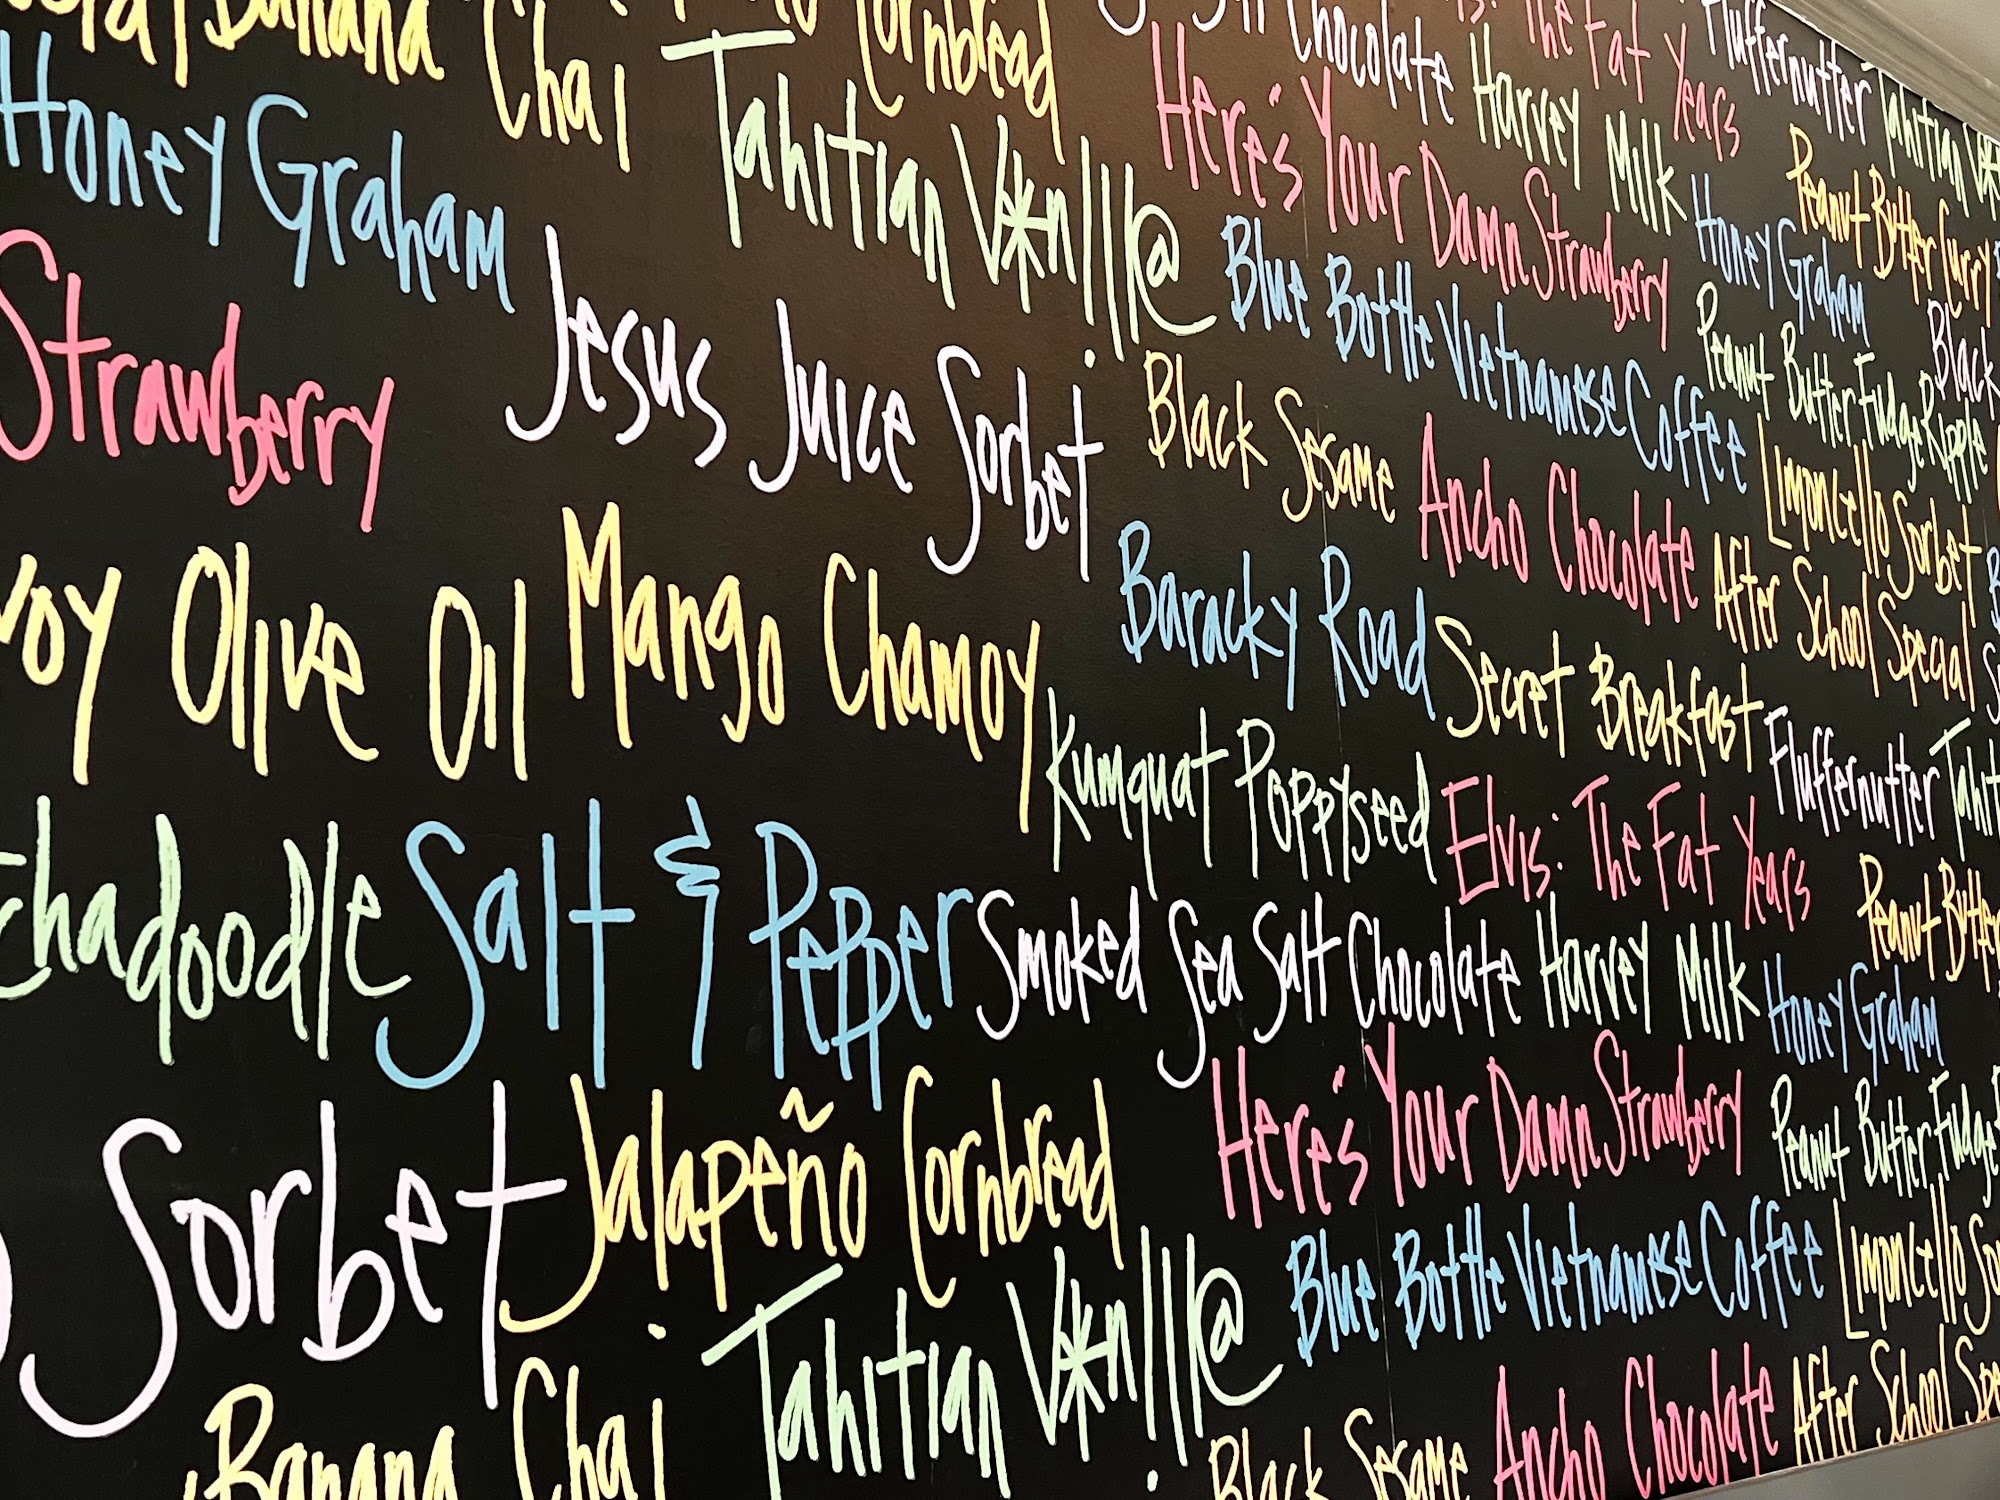 Banana
Chai
Cornbread
Salt Chocolate
The Fat Years
Fluffernutter
Honey Graham
Tahitian V*nill@
Here's Your Damn Strawberry
Harvey Milk
Tahitian V*
Peanut Butter Curry
Strawberry
Jesus Juice Sorbet
Blue Bottle Vietnamese Coffee
Honey Graham
Black Sesame
Peanut Butter Fudge Ripple
Black
Ancho Chocolate
Limoncello Sorbet
voy Olive Oil
Mango Chamoy
Baracky Road
After School Special
Secret Breakfast
Kumquat Poppyseed
Fluffernutter
Tahit
chadoodle
Salt & Pepper
Elvis: The Fat Years
Peanut Butter
Smoked Sea Salt Chocolate
Harvey Milk
Honey Graham
Sorbet
Jalapeño Cornbread
Here's Your Damn Strawberry
Peanut Butter Fudge
Blue Bottle Vietnamese Coffee
Limoncello So
Banana
Chai
Tahitian V*nill@
Black Sesame
Ancho Chocolate
After School Spe